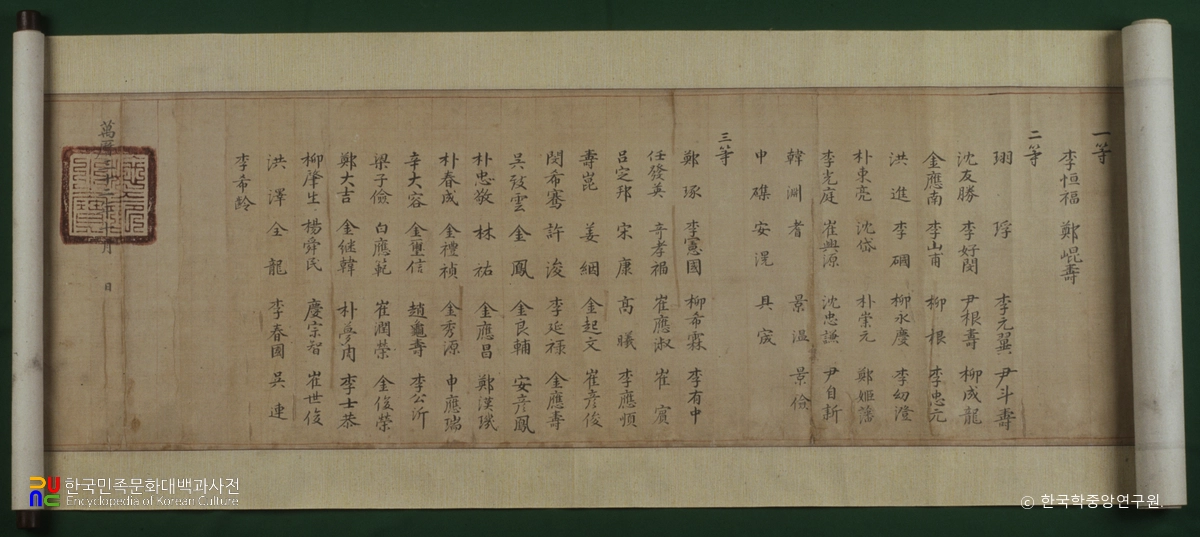 一等
李恒福 鄭崐壽
二等
珝 琈 李元翼 尹斗壽
沈友勝 李好閔 尹根壽 柳成龍
金應南 李山甫 柳根 李忠元
洪進 李𥕏 柳永慶 李幼澄
朴東亮 沈岱 朴崇元 鄭姬藩
李光庭 崔興源 沈忠謙 尹自新
韓淵 者 景温 景儉
申磼 安滉 具宬
三等
鄭琢 李憲國 柳希霖 李有中
任發英 奇孝福 崔應淑 崔賓
呂定邦 宋康 高曦 李應順
壽崑 姜絪 金起文 崔彦俊
閔希騫 許浚 李延祿 金應壽
吳致雲 金鳳 金良輔 安彦鳳
朴忠敬 林祐 金應昌 鄭漢璣
朴春成 金禮楨 金秀源 申應瑞
辛大容 金璽信 趙龜壽 李公沂
梁子儉 白應範 崔潤榮 金俊榮
鄭大吉 金継韓 朴夢周 李士恭
柳肇生 楊舜民 慶宗智 崔世俊
洪澤 全龍 李春國 吳連
李希齡
萬曆三十二年十月 日
한국민족문화대백과사전
Encyclopedia of Korean Culture
ⓒ 한국학중앙연구원